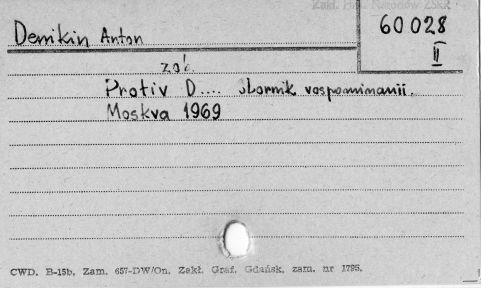 Zakł. Hist. Narodów ZSRR
60 028
II
Denikin Anton
zob.
Protiv D.... Sbornik vospominanii.
Moskva 1969
CWD. B-15b, Zam. 657-DW/On. Zakł. Graf. Gdańsk, zam. nr 1795.